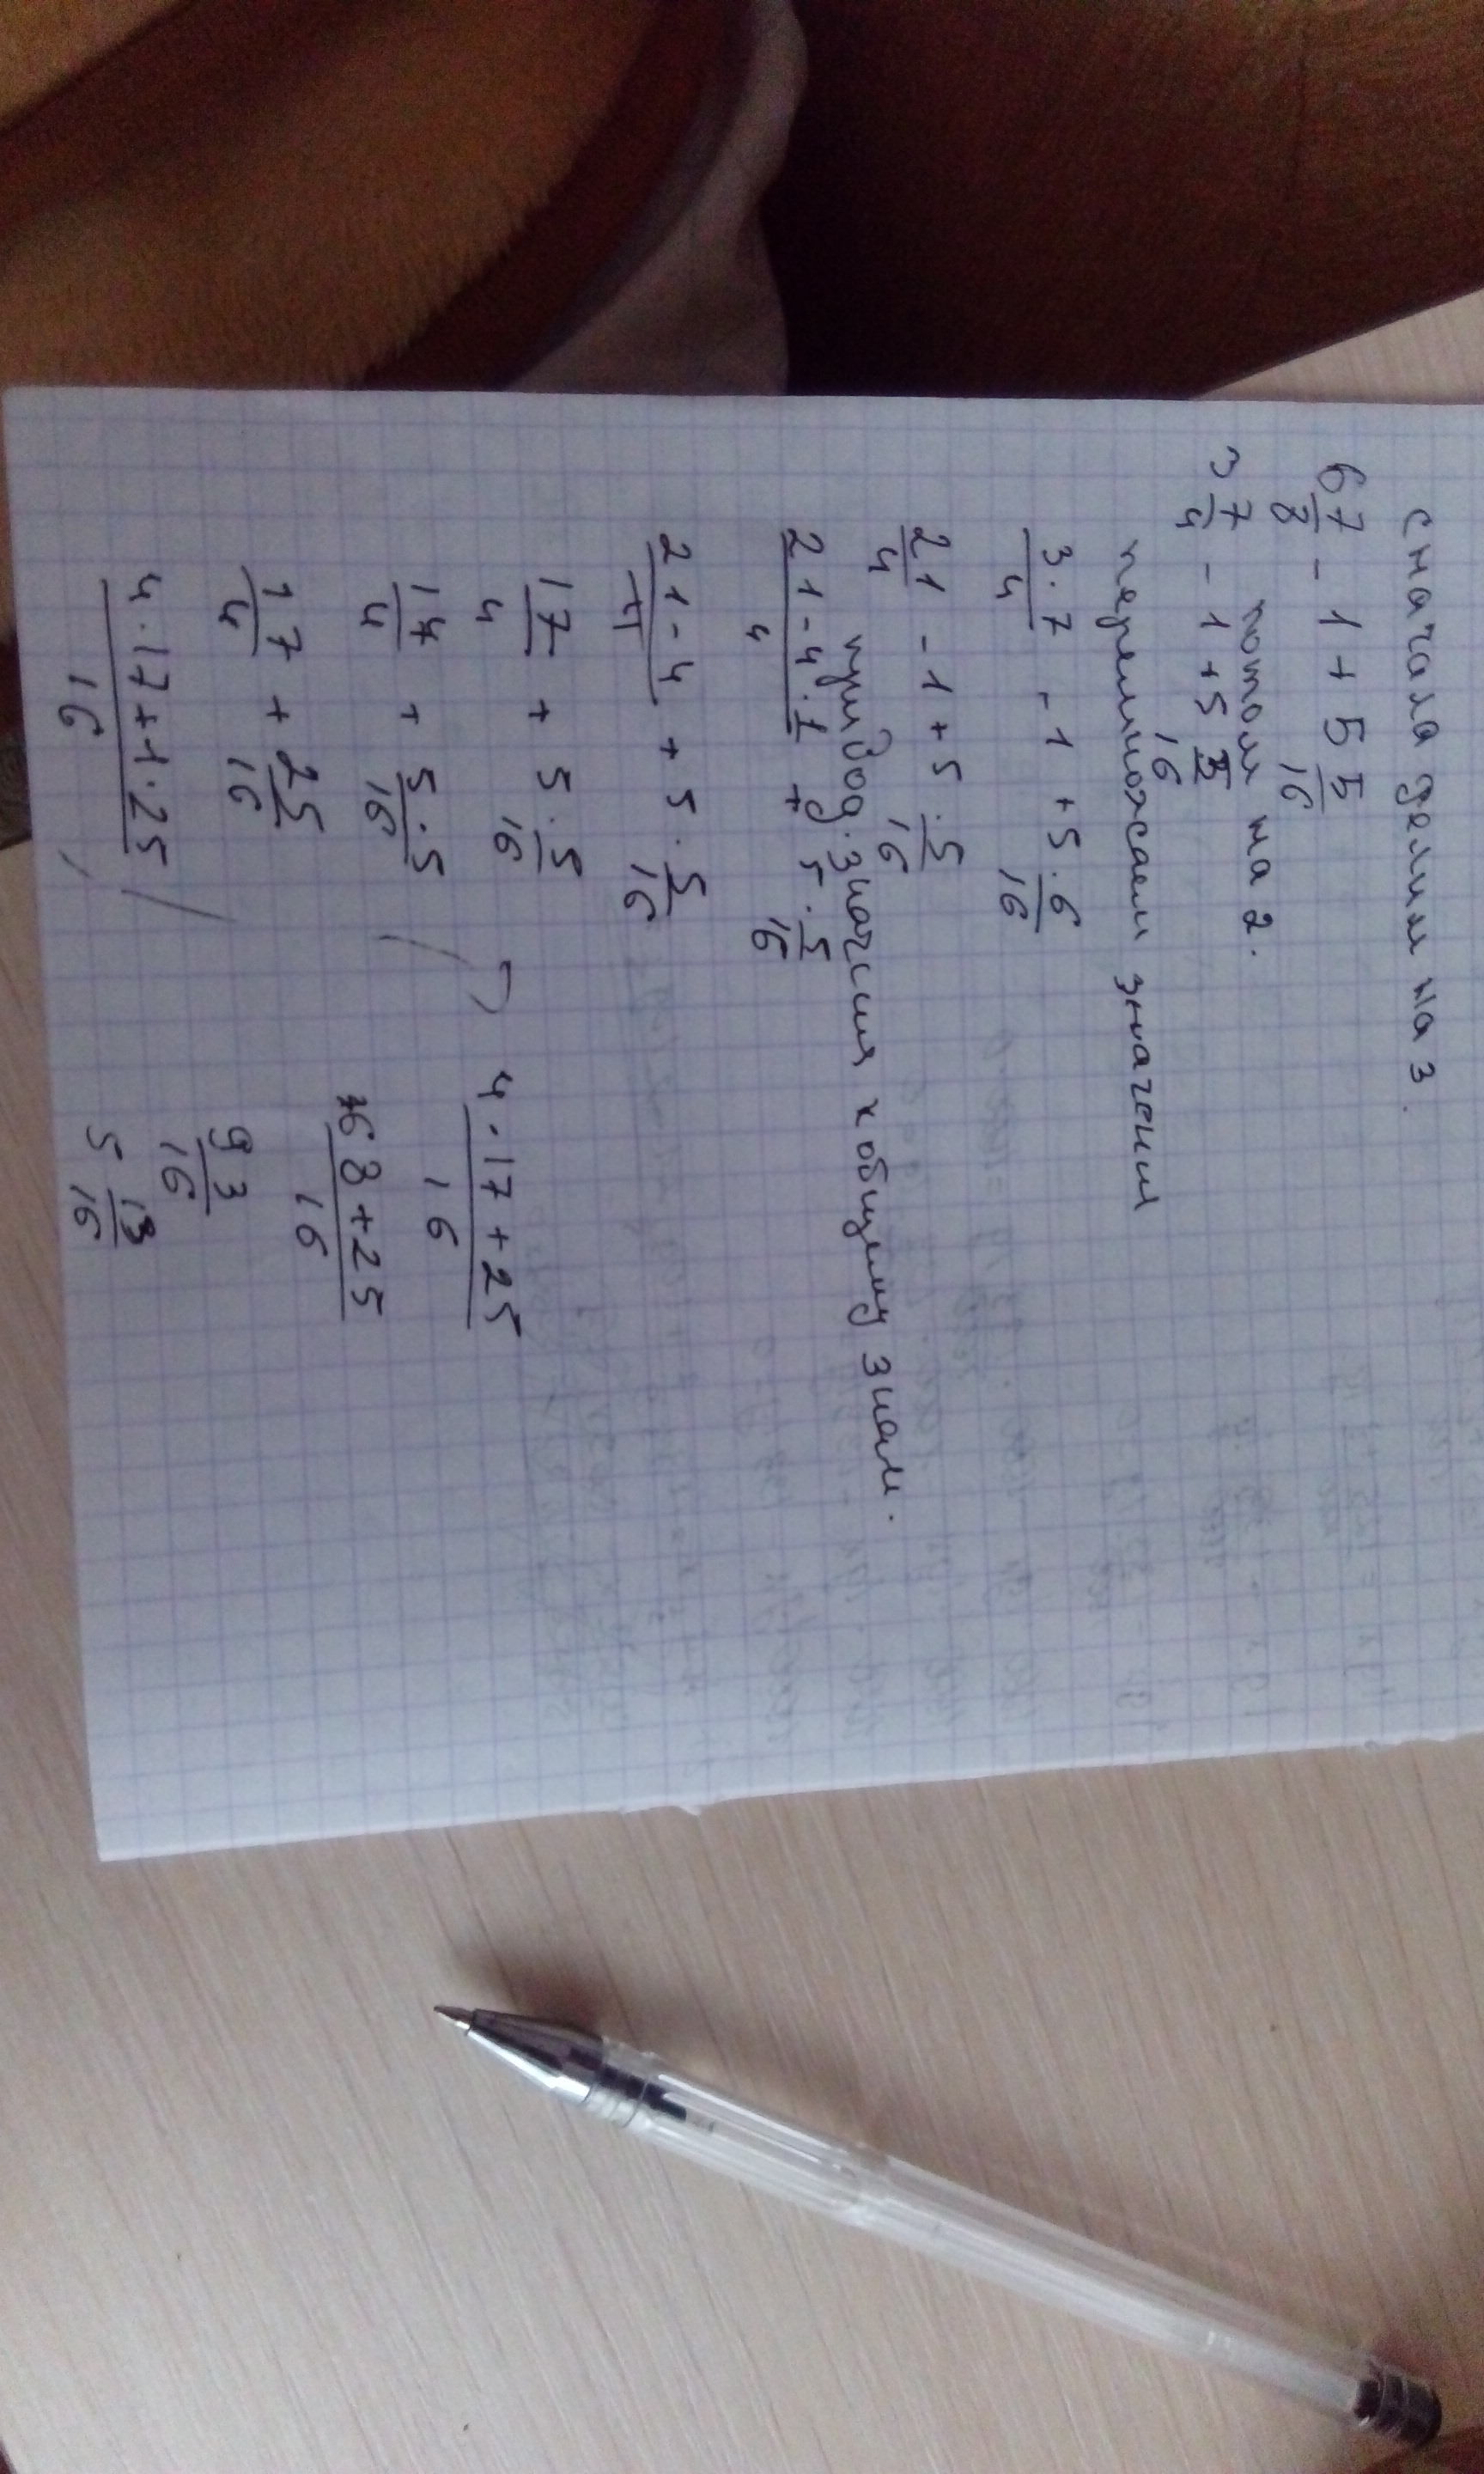 сначала делим на 3.
6 7/8 - 1 + 5 5/16
потом на 2.
3 7/4 - 1 + 5 5/16
перемножаем значения
3·7/4 - 1 + 5·6/16
21/4 - 1 + 5·5/16
привод. значения к общему знам.
21-4·1/4 + 5·5/16
21-4/4 + 5·5/16
17/4 + 5·5/16
17/4 + 5·5/16
17/4 + 25/16
4·17+1·25/16
4·17+25/16
68+25/16
93/16
5 13/16